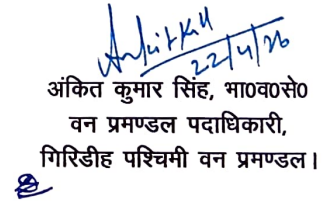 22/4/26
अंकित कुमार सिंह, भा०व०से०
वन प्रमण्डल पदाधिकारी,
गिरिडीह पश्चिमी वन प्रमण्डल।